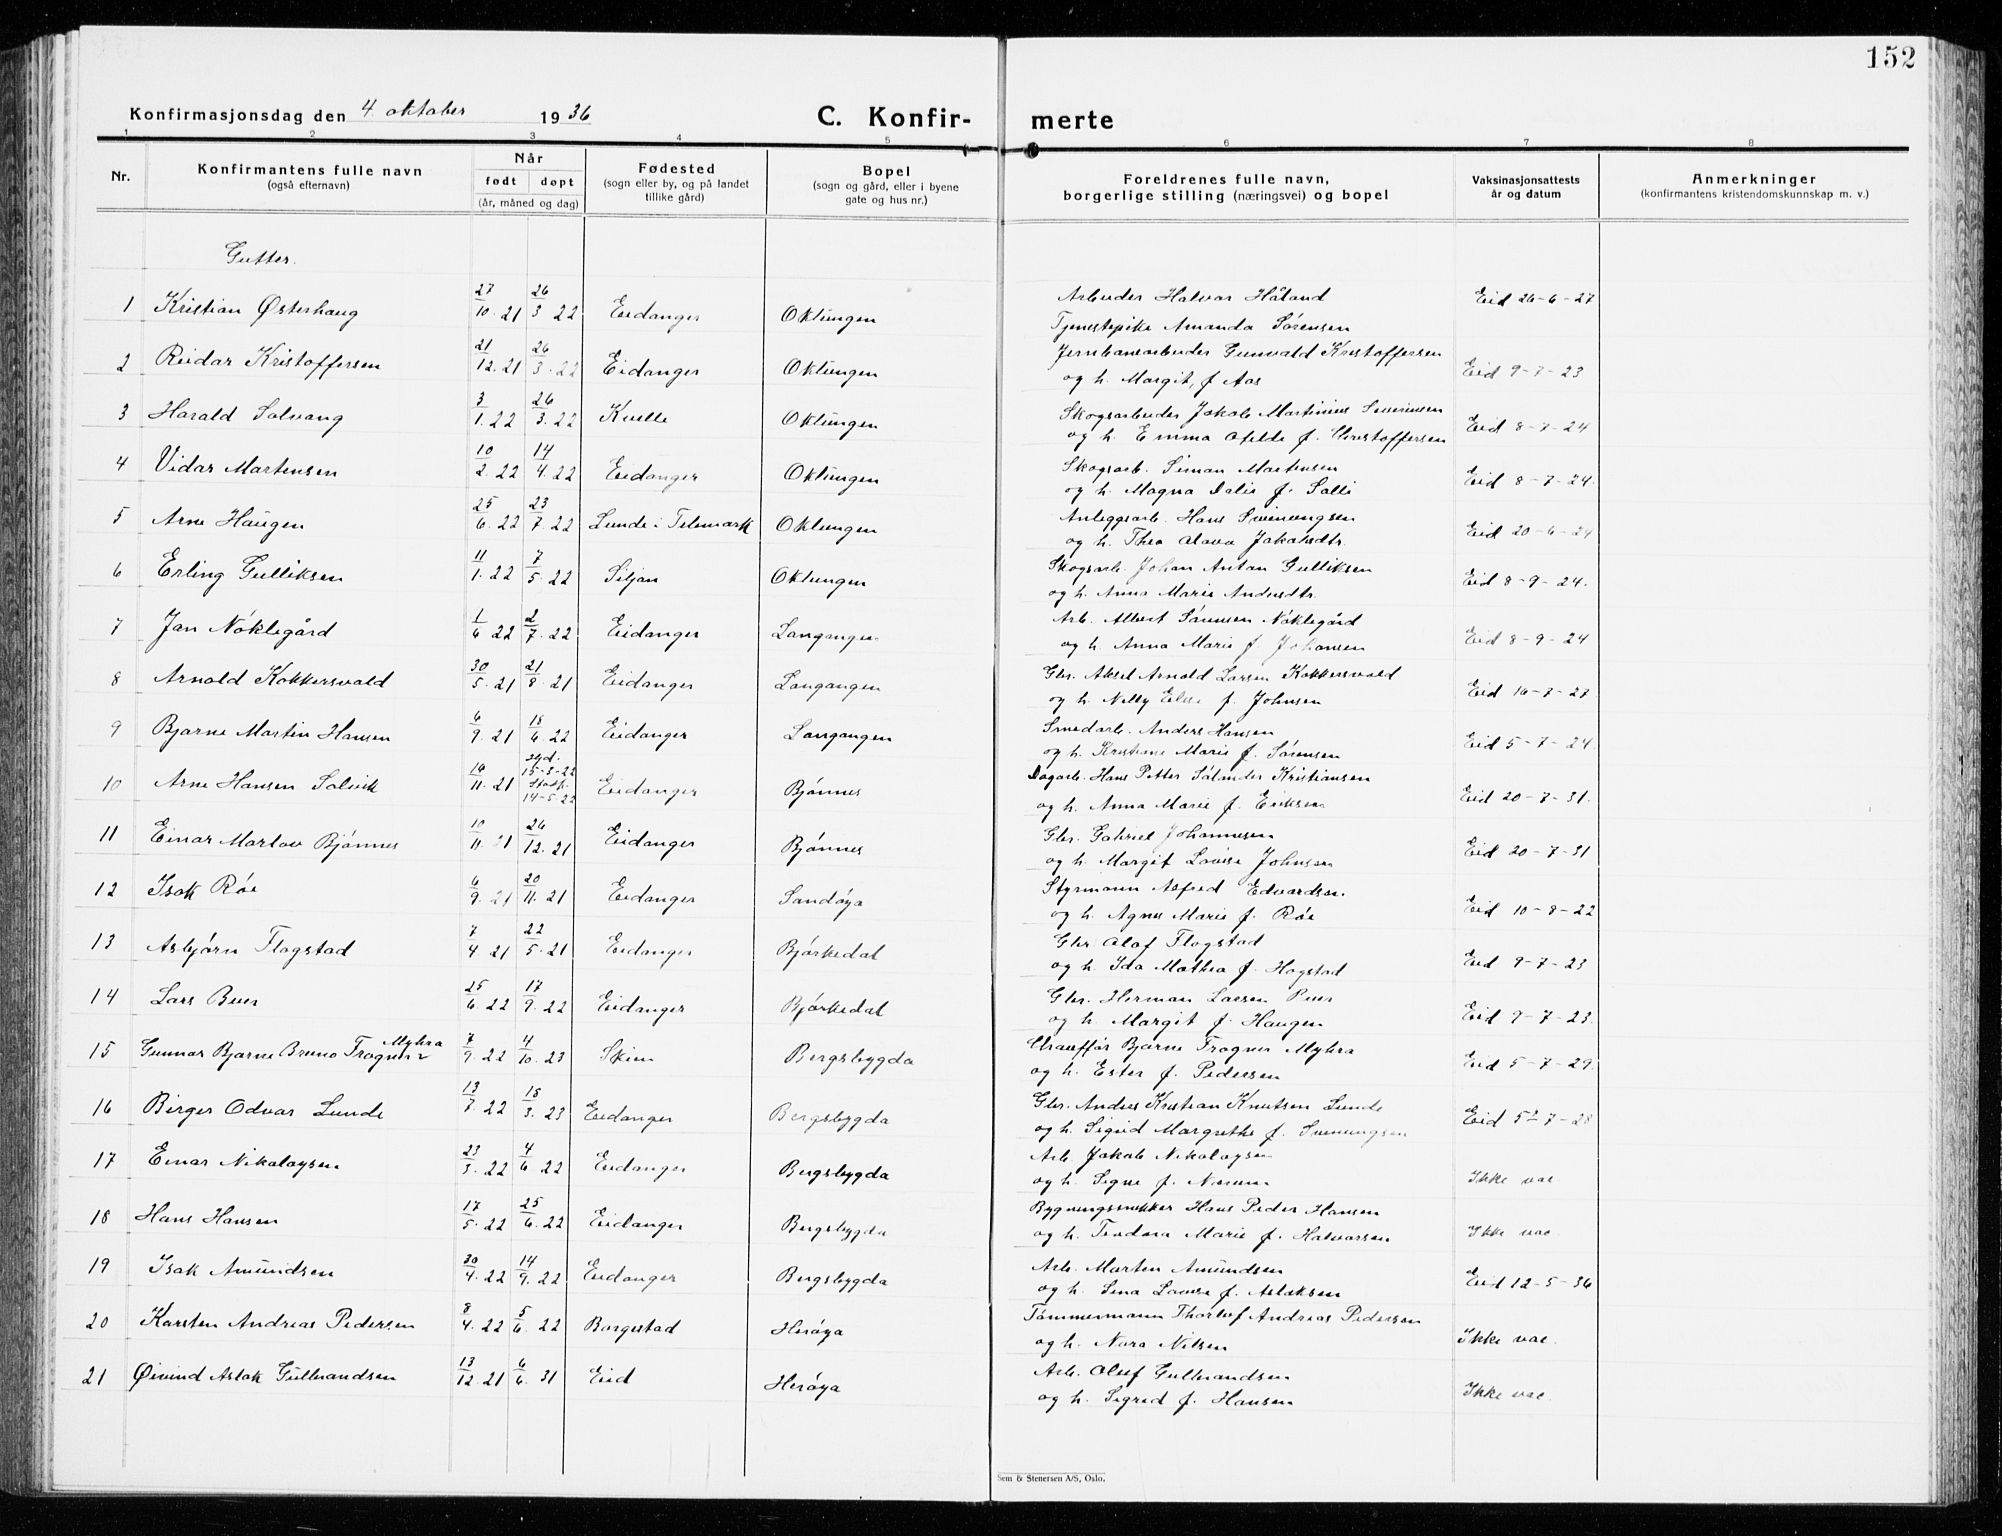 152
Konfirmasjonsdag den 4. oktober 1936 C. Konfir- merte
1 2 3 4 5 6 7 8
Nr. Konfirmantens fulle navn (også efternavn) Når født døpt (år, måned og dag) Fødested (sogn eller by, og på landet tillike gård) Bopel (sogn og gård, eller i byene gate og hus nr.) Foreldrenes fulle navn, borgerlige stilling (næringsvei) og bopel Vaksinasjonsattests år og datum Anmerkninger (konfirmantens kristendomskunnskap m. v.)
Gutter.
1 Kristian Østerhaug 27/10. 21 26/3 22 Eidanger Oklungen Arbeider Halvor Håland Eid 26-6-27
Tjenestepike Amanda Sørensen
2 Reidar Kristoffersen 21/12. 21 26/3. 22 Eidanger Oklungen Jernbanearbeider Gunvald Kristoffersen Eid 9-7-23
og h. Margit, f. Aas
3 Harald Solvang 3/1. 22 26/3. 22 Kvelle Oklungen Skogsarbeider Jakob Martinius Severinsen Eid 8-7-24
og h. Emma f. Christoffersen
4 Vidar Martensen 10/2. 22 14/4. 22 Eidanger Oklungen Skogsarb. Simon Martensen Eid 8-7-24.
og h. Magna Dalie f. Solli
5 Arne Haugen 25/6. 22 23/7. 22 Lunde i Telemark Oklungen Anleggsarb. Hans Sveinungsen Eid 20-6-24
og h. Thea Olava Jakobsdtr.
6 Erling Gulliksen 11/1. 22 7/5. 22 Siljan Oklungen Skogsarb. Johan Anton Gulliksen Eid 8-9-24.
og h. Anna Marie Andersdtr.
7 Jan Nøklegård 1/6 22 2/7. 22 Eidanger Langangen Arb. Albert Sørensen Nøklegård Eid 8-9-24
og h. Anna Marie f. Johansen
8 Arnold Kokkersvold 30/5. 21 21/8. 21 Eidanger Langangen Gbr. Aksel Arnold Larsen Kokkersvold Eid 16-7-27
og h. Nelly Elise f. Johnsen
9 Bjarne Martin Hansen 6/9. 21 18/6. 22 Eidanger Langangen Smedarb. Anders Hansen Eid 5-7-24.
og h. Kristiane Marie f. Sørensen
10 Arne Hansen Solvik 16/11. 21 15-3-22 Stadf. 14-5-22 Eidanger Bjønnes Dagarb. Hans Petter Kristiansen Eid 20-7-31.
og h. Anna Marie f. Eriksen
11 Einar Marlov Bjønnes 10/11. 21 26/12. 21 Eidanger Bjønnes Gbr. Gabriel Johannesen Eid 20-7-31
og h. Margit Lovise Johnsen
12 Isak Røe 6/9. 21 20/11. 21 Eidanger Sandøya Styrmann Alfred Edvardsen. Eid 10-8-22
og h. Agnes Marie f. Røe
13 Asbjørn Flogstad 7/4. 21 22/5. 21 Eidanger Bjørkedal Gbr. Olaf Flogstad Eid 9-7-23
og h. Ida Mathea f. Hogstad
14 Lars Buer 25/6. 22 17/9. 22 Eidanger Bjørkedal Gbr. Herman Larsen Buer Eid 9-7-23.
og h. Margit f. Haugen
15 Gunnar Bjarne Bruno Trogner Myhra 7/9. 22 4/10. 23 Skien Bergsbygda Chauffør Bjarne Trogner Myhra Eid 5-7-29
og h. Ester f. Pedersen
16 Birger Odvar Lunde 13/7. 22 18/3. 23 Eidanger Bergsbygda Gbr. Anders Kristian Knutsen Lunde Eid 5-7-28
og h. Sigrid Margrethe f. Sveinungsen
17 Einar Nikolaysen 23/3. 22 4/6 22 Eidanger Bergsbygda Arb. Jakob Nikolaysen Ikke vac.
og h. Signe f.
18 Hans Hansen 17/5. 22 25/6. 22 Eidanger Bergsbygda Bygningssnekker Hans Peder Hansen Ikke vac.
og h. Teodora Marie f. Halvorsen
19 Isak Amundsen 30/4. 22 14/9. 22 Eidanger Bergsbygda Arb. Morten Amundsen Eid 12-5-36
og h. Lina Lovise f. Aslaksen
20 Karsten Andreas Pedersen 8/4. 22 5/6. 22 Borgestad Herøya Tømmermann Thorleif Andreas Pedersen Ikke vac.
og h. Nora Nilsen
21 Øivind Aslak Gulbrandsen 13/12. 21 6/6. 31 Eid Herøya Arb. Oluf Gulbrandsen Ikke vac.
og h. Sigrid f. Hansen
Sem & Stenersen A/S, Oslo.